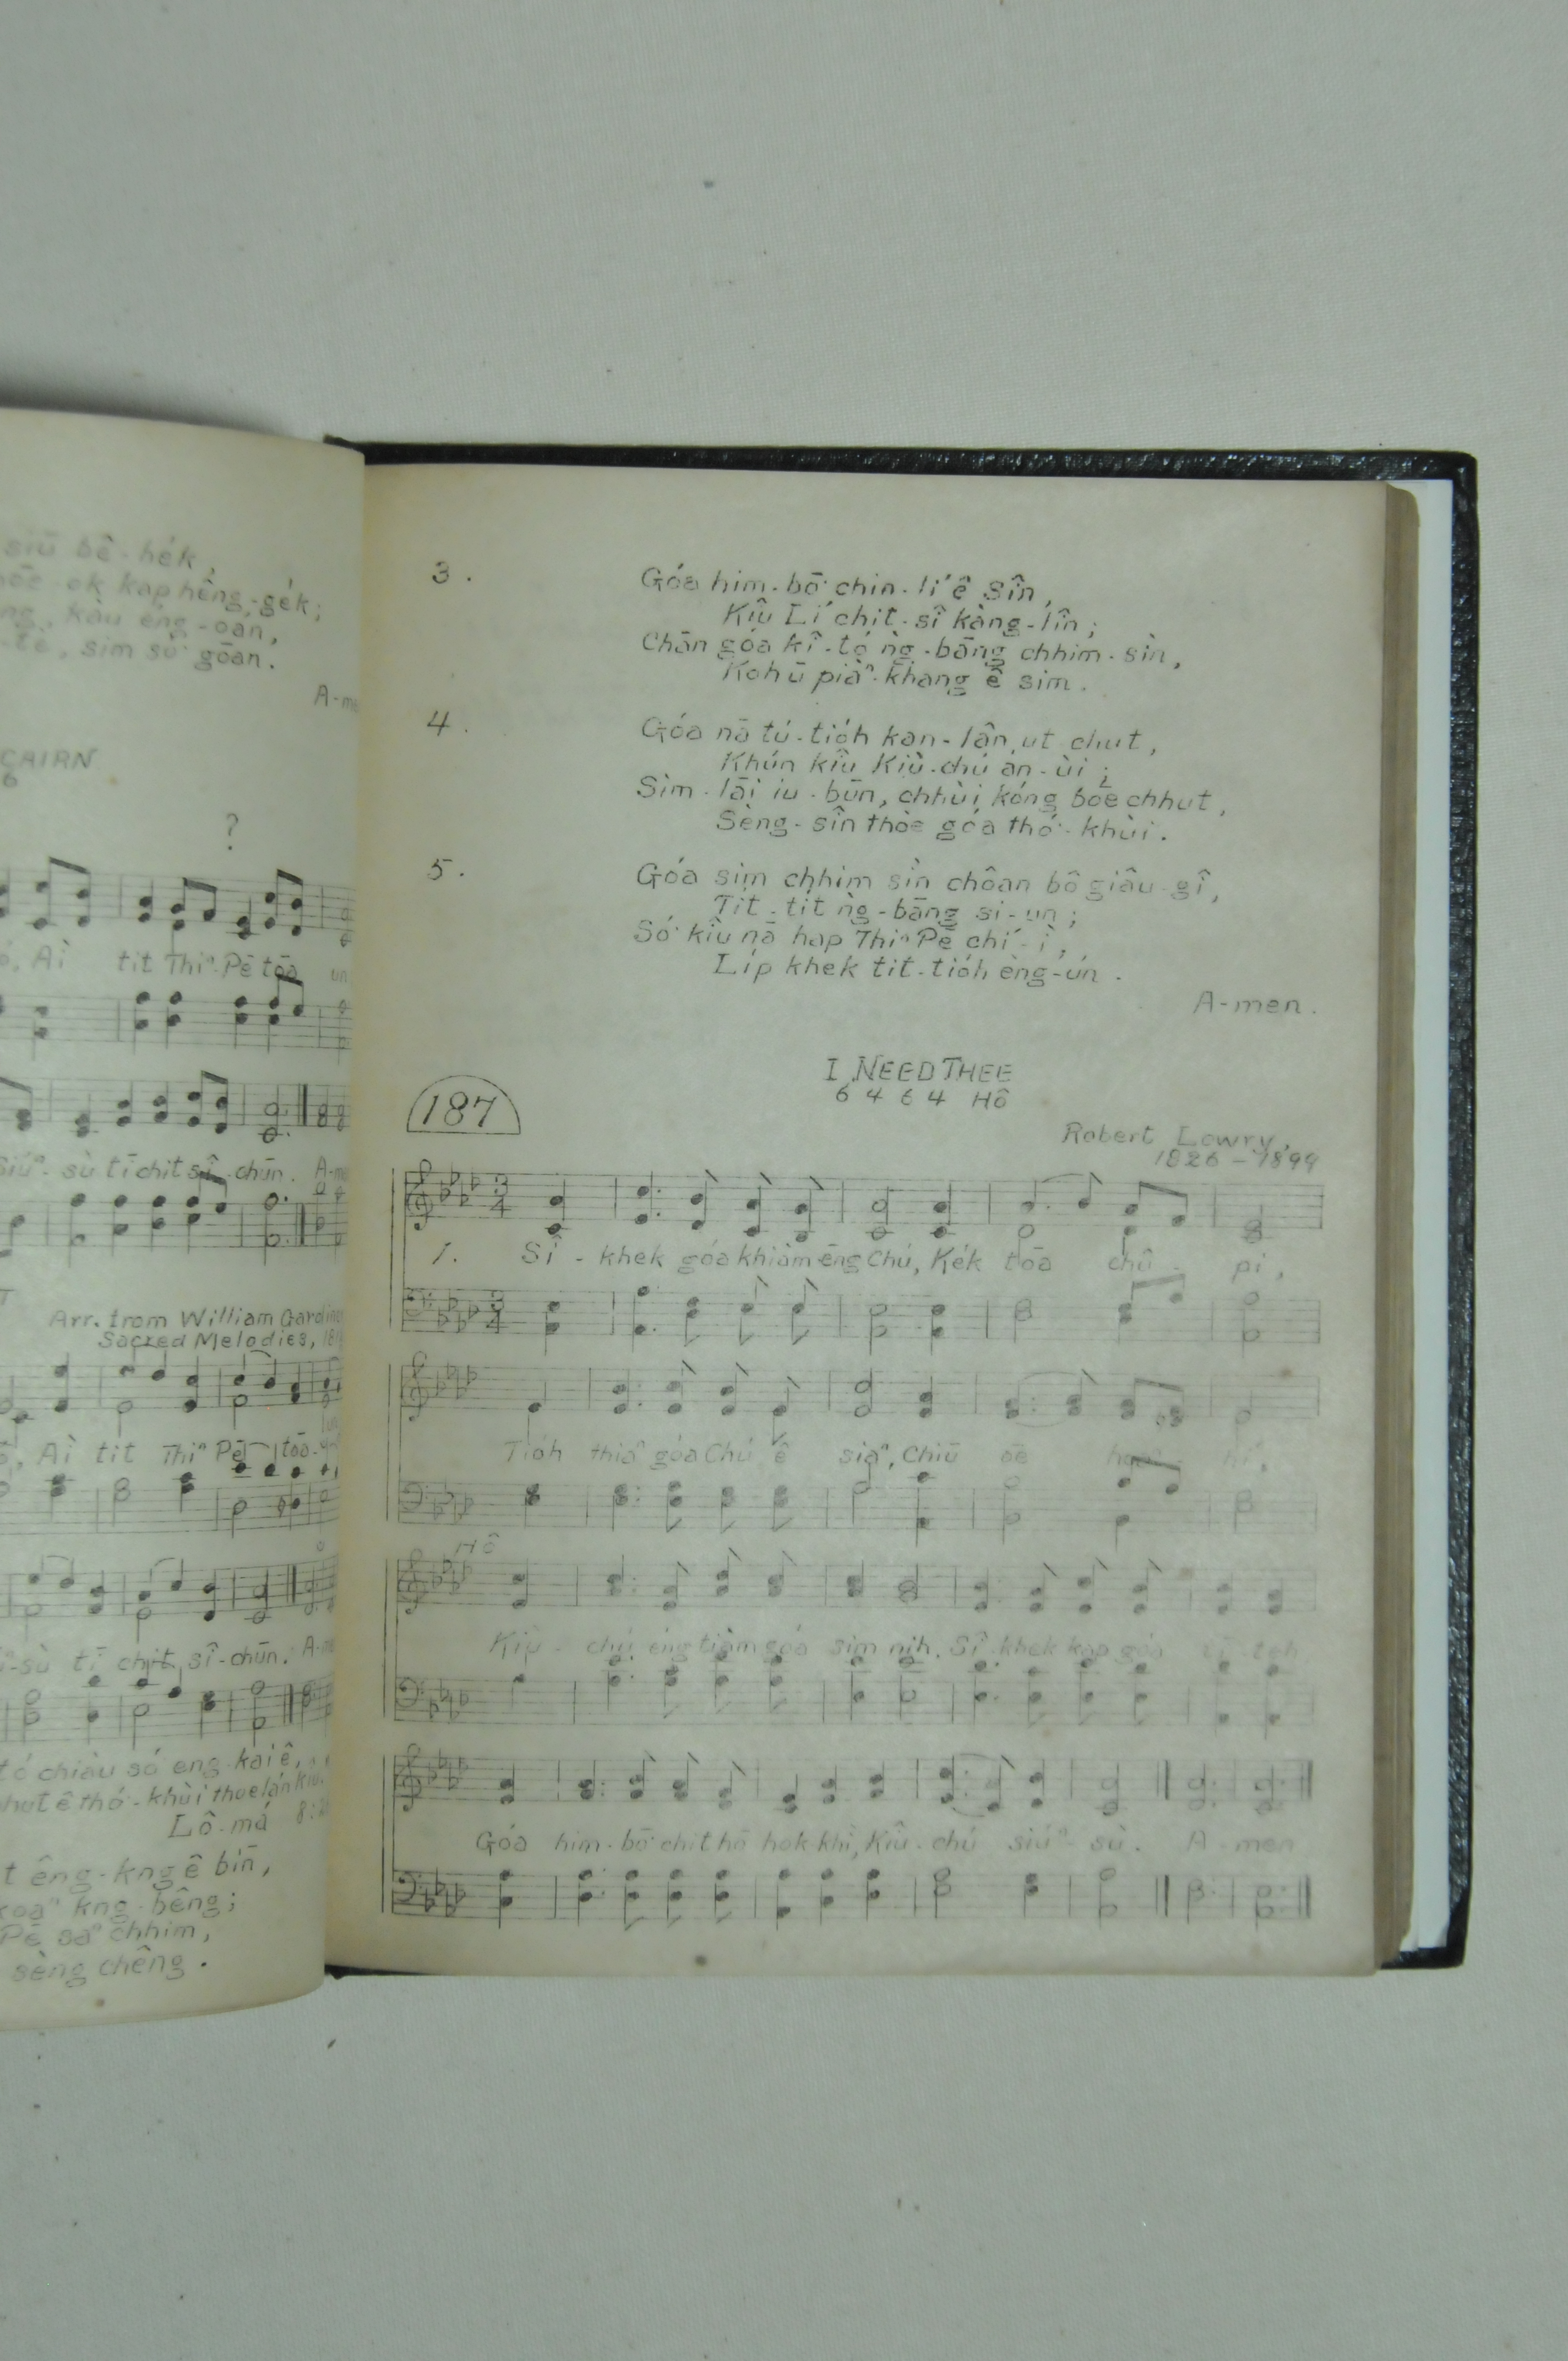 siū bê-he̍k,
ok kap hêng-ge̍k;
kàu éng-oán,
sim só͘ gōan.
A-me
CAIRN
6
?
Aì tit Thiⁿ Pē tōa un
sù tī chit sî-chūn. A-me
Arr. from William Gardin
Sacred Melodies, 18
Aì tit Thiⁿ Pē tōa-un
sù tī chit sî-chūn. A-me
tó chiàu só͘ eng-kai ê,
ê thó-khùi thoe lán kiû.
Lô-má 8:2
t êng-kng ê bīn,
kng-bêng;
Pē saⁿ chhim,
sèng chêng.
3.
Góa him-bō͘ chin-lí ê Sîn,
Kiû Lí chit-sî kàng-lîn;
Chān góa kî-tó ǹg-bāng chhim-sìn,
Koh ū piàⁿ-khang ê sim.
4.
Góa nā tú-tio̍h kan-lân ut chut,
Khún kiû Kiù-chú an-ùi;
Sim-lāi iu-būn, chhùi kóng bōe chhut,
Sèng-sîn thòe góa thó͘-khùi.
5.
Góa sim chhim sìn chôan bô giâu-gî,
Tit-tit ǹg-bāng si-un;
Só͘ kiû nā hap Thiⁿ Pē chí-ì,
Li̍p khek tit-tio̍h èng-ún.
A-men.
I NEED THEE
6 4 6 4 Hô
187
Robert Lowry,
1826-1899
1. Sî-khek góa khiàm ēng Chú, Ke̍k tōa chû-pi,
Tio̍h thiaⁿ góa Chú ê siaⁿ, Chiū oē hoaⁿ-hí,
Hô
Kiù-chú éng tiàm góa sim nih, Sî-khek kap góa tī-teh
Góa him-bō͘ chit hō hok-khì, Kiû-chú siúⁿ-sù. A-men